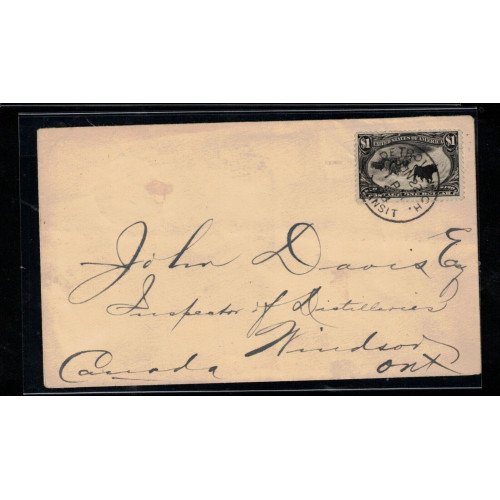 $1 UNITED STATES OF AMERICA $1
DETROIT
TRANSIT
John Davis Esq
Inspector of Distilleries
Windsor
Canada Ont